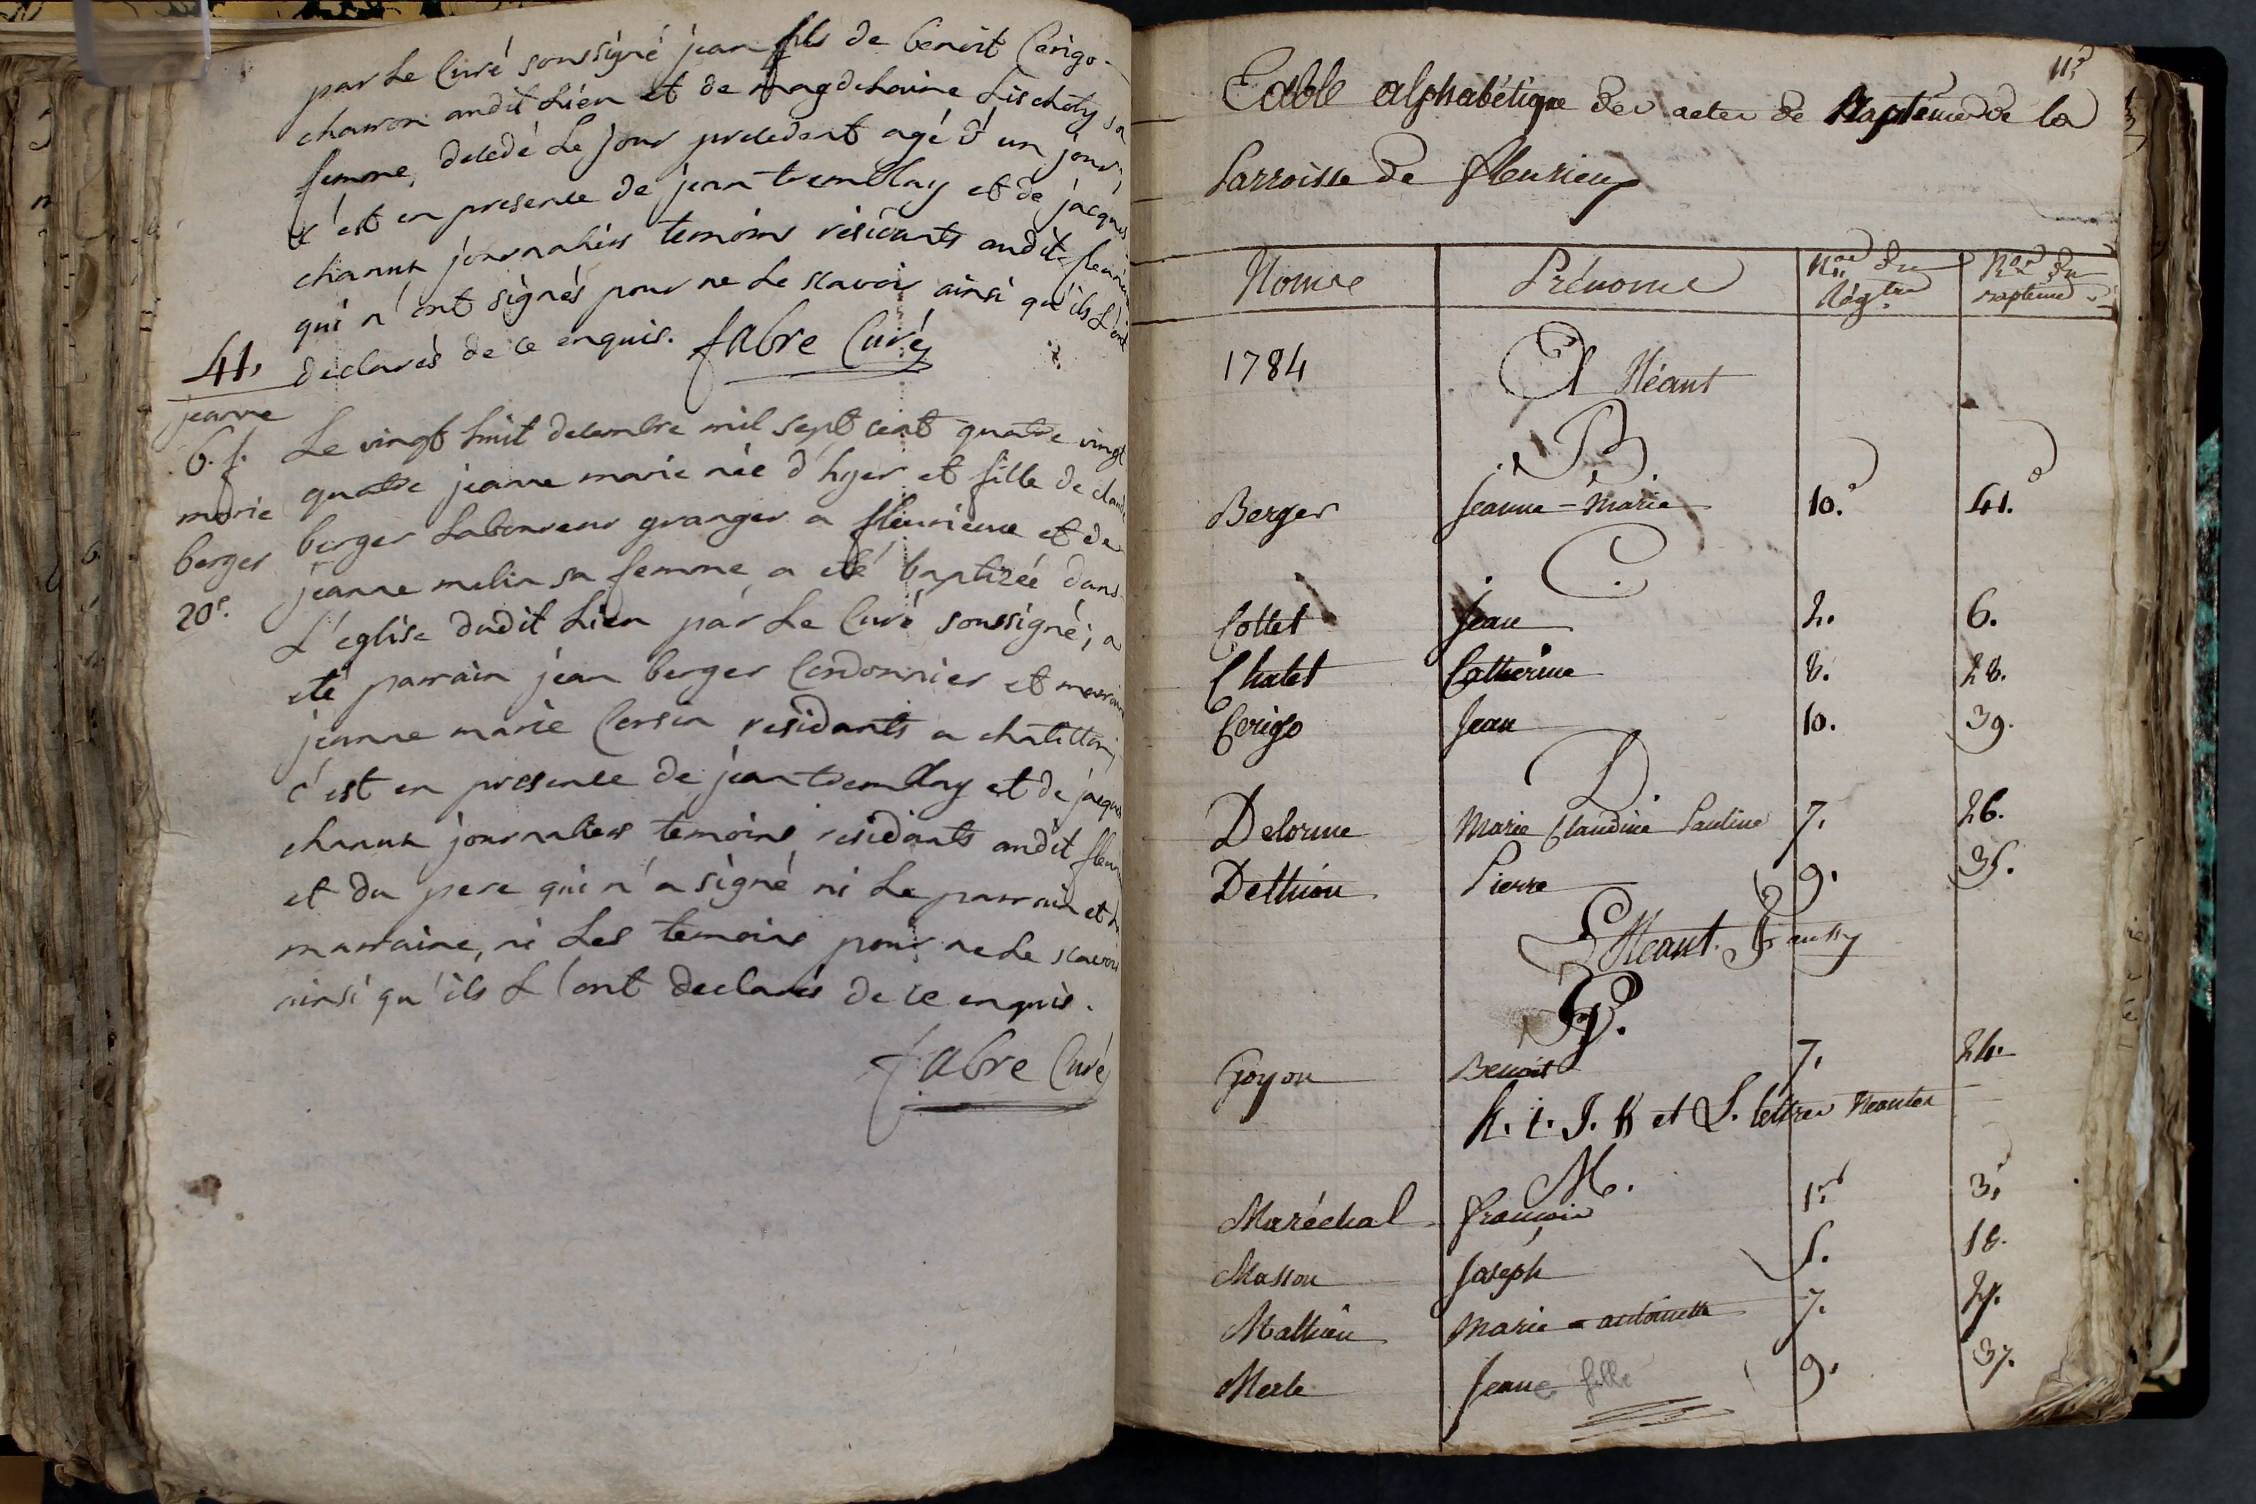 par le Curé soussigné jean fils de benoit Cerigo
charron audit lieu et de magdelaine
femme, decedé le jour precedent agé d'un jour,
c'est en presence de jean tremblay et de jacques
chanux journaliers temoins résidants audit fleurieu
qui n'ont signés pour ne le scavoir ainsi qu'ils l'ont
declarés de ce enquis. fabre Curé
41.
jeanne
b. f.
marie
berger
20e.
Le vingt huit decembre mil sept cent quatre vingt
quatre jeanne marie née d'hyer et fille de claude
berger laboureur granger a fleurieux et de
jeanne melin sa femme a eté baptizée dans
L'eglise dudit lieu par le Curé soussigné; a
eté parrain jean berger Cordonnier et marraine
jeanne marie Cersin residants a chatillon,
c'est en presence de jean tremblay et de jacques
chanux journaliers temoins residants audit fleurieu
et du pere qui n'a signé ni le parrain et la
marraine, ni les temoins pour ne le scavoir
ainsi qu'ils l'ont declarés de ce enquis.
fabre Curé
11e
Table alphabétique des actes de Baptêmes de la
Parroisse de fleurieux
Noms Prénoms Nos. du Régtre. Nos. du baptême
1784 A Néant
B.
Berger Jeanne-Marie 10.e 41.e
C.
Collet Jean 2. 6.
Chalet Catherine 8. 28.
Cerigo Jean 10. 39.
D.
Delorme Marie Claudine Pauline 7. 26.
Dethieu Pierre 9. 35.
E Néant. F aussy
G.
Goyon Benoit 7. 24.
h. i. J. K et L. lettres Neantes
M.
Maréchal françois 1.er 3.e
Masson Joseph 5. 18.
Mathieu Marie-antoinette 7. 27.
Merle Jeane fille 9. 37.